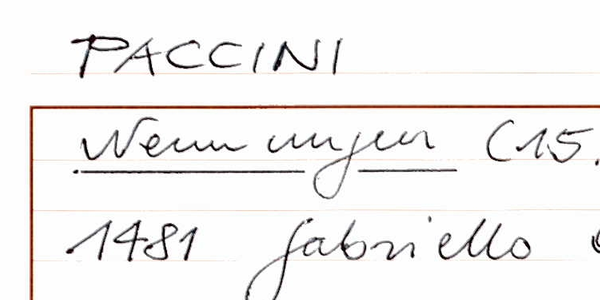 PACCINI
Nennungen (15.
1481 Gabriello